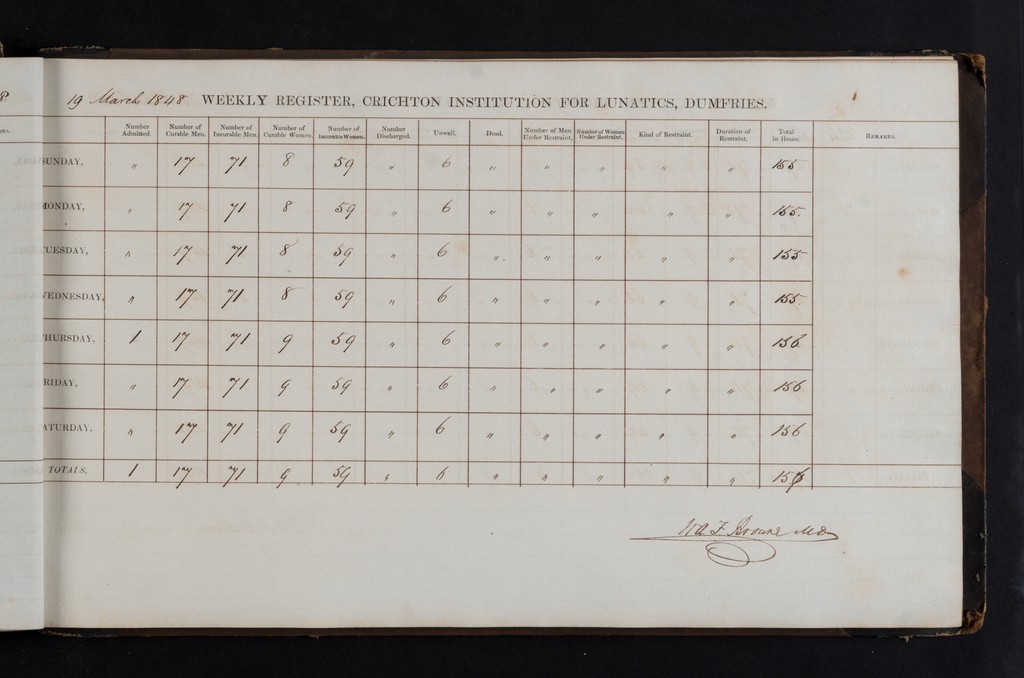 8.
19 March 1848 WEEKLY REGISTER, CRICHTON INSTITUTION FOR LUNATICS, DUMFRIES.
Number Admitted. Number of Curable Men. Number of Incurable Men. Number of Curable Women. Number of Incurable Women. Number Discharged. Unwell. Dead. Number of Men Under Restraint. Number of Women Under Restraint. Kind of Restraint. Duration of Restraint. Total in House. REMARKS.
SUNDAY, " 17 71 8 59 " 6 " " " " " 155
MONDAY, " 17 71 8 59 " 6 " " " " " 155.
TUESDAY, " 17 71 8 59 " 6 " " " " " 155
WEDNESDAY, " 17 71 8 59 " 6 " " " " " 155.
THURSDAY, 1 17 71 9 59 " 6 " " " " " 156.
FRIDAY, " 17 71 9 59 " 6 " " " " " 156
SATURDAY, " 17 71 9 59 " 6 " " " " " 156
TOTALS, 1 17 71 9 59 " 6 " " " " " 156
W. A. F. Browne M.D.